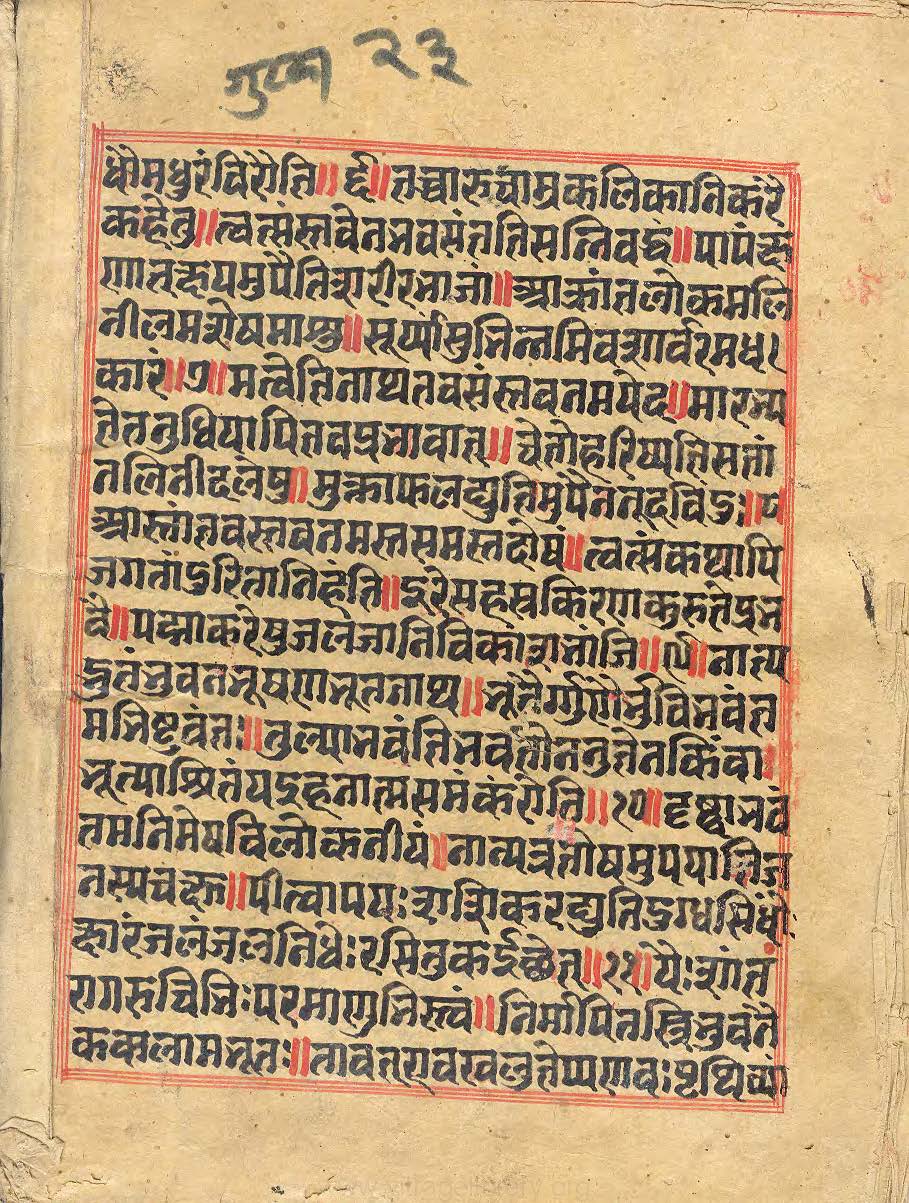 गुटका २३
धौमधुरंविरौति॥६॥तच्चारुचाम्रकलिकानिकरै
कहेतु॥त्वत्संस्तवेनभवसंततिसन्निबद्धं॥पापंक्ष
णात्क्षयमुपैतिशरीरभाजां॥आक्रांतलोकमलि
नीलमशेषमाशु॥सूर्य्याशुभिन्नमिवशार्वरमंध
कारं॥७॥मत्वेतिनाथतवसंस्तवनमयेद॥मारभ्य
तेतनुधियापितवप्रभावात्॥चेतोहरिष्यतिसतां
नलिनीदलेषु॥मुक्ताफलद्युतिमुपैननूदविंदुः॥८
आस्तांतवस्तवनमस्तसमस्तदोषं॥त्वत्संकथापि
जगतांदुरितानिहंति॥दूरेसहस्रकिरणकुरुतेप्रभ
वै॥पद्माकरेषुजलजानिविकाशभांजि॥९॥नात्य
द्भुतंभुवनभूषणभूतनाथ॥भूतैर्गुणैर्भुविभवंत
मभिष्टवंतः॥तुल्याभवंतिभवतोननुतेनकिंवा
भूत्याश्रितंयइहनात्मसमंकरोति॥१०॥दृष्ट्वाभवं
तमनिमेषविलोकनीयं॥नान्यत्रतोषमुपयातिज
नस्यचक्षु॥पीत्वापयःशशिकरद्युतिदुग्धसिंधोः
क्षारंजलंजलनिधेःरसितुकईछेत्॥११॥यैःशांत
रागरुचिभिःपरमाणुभिस्त्वं॥निर्मापितस्त्रिभुवनै
कललामभूतः॥तावंतएवखलुतेप्यणवःपृथिव्यां